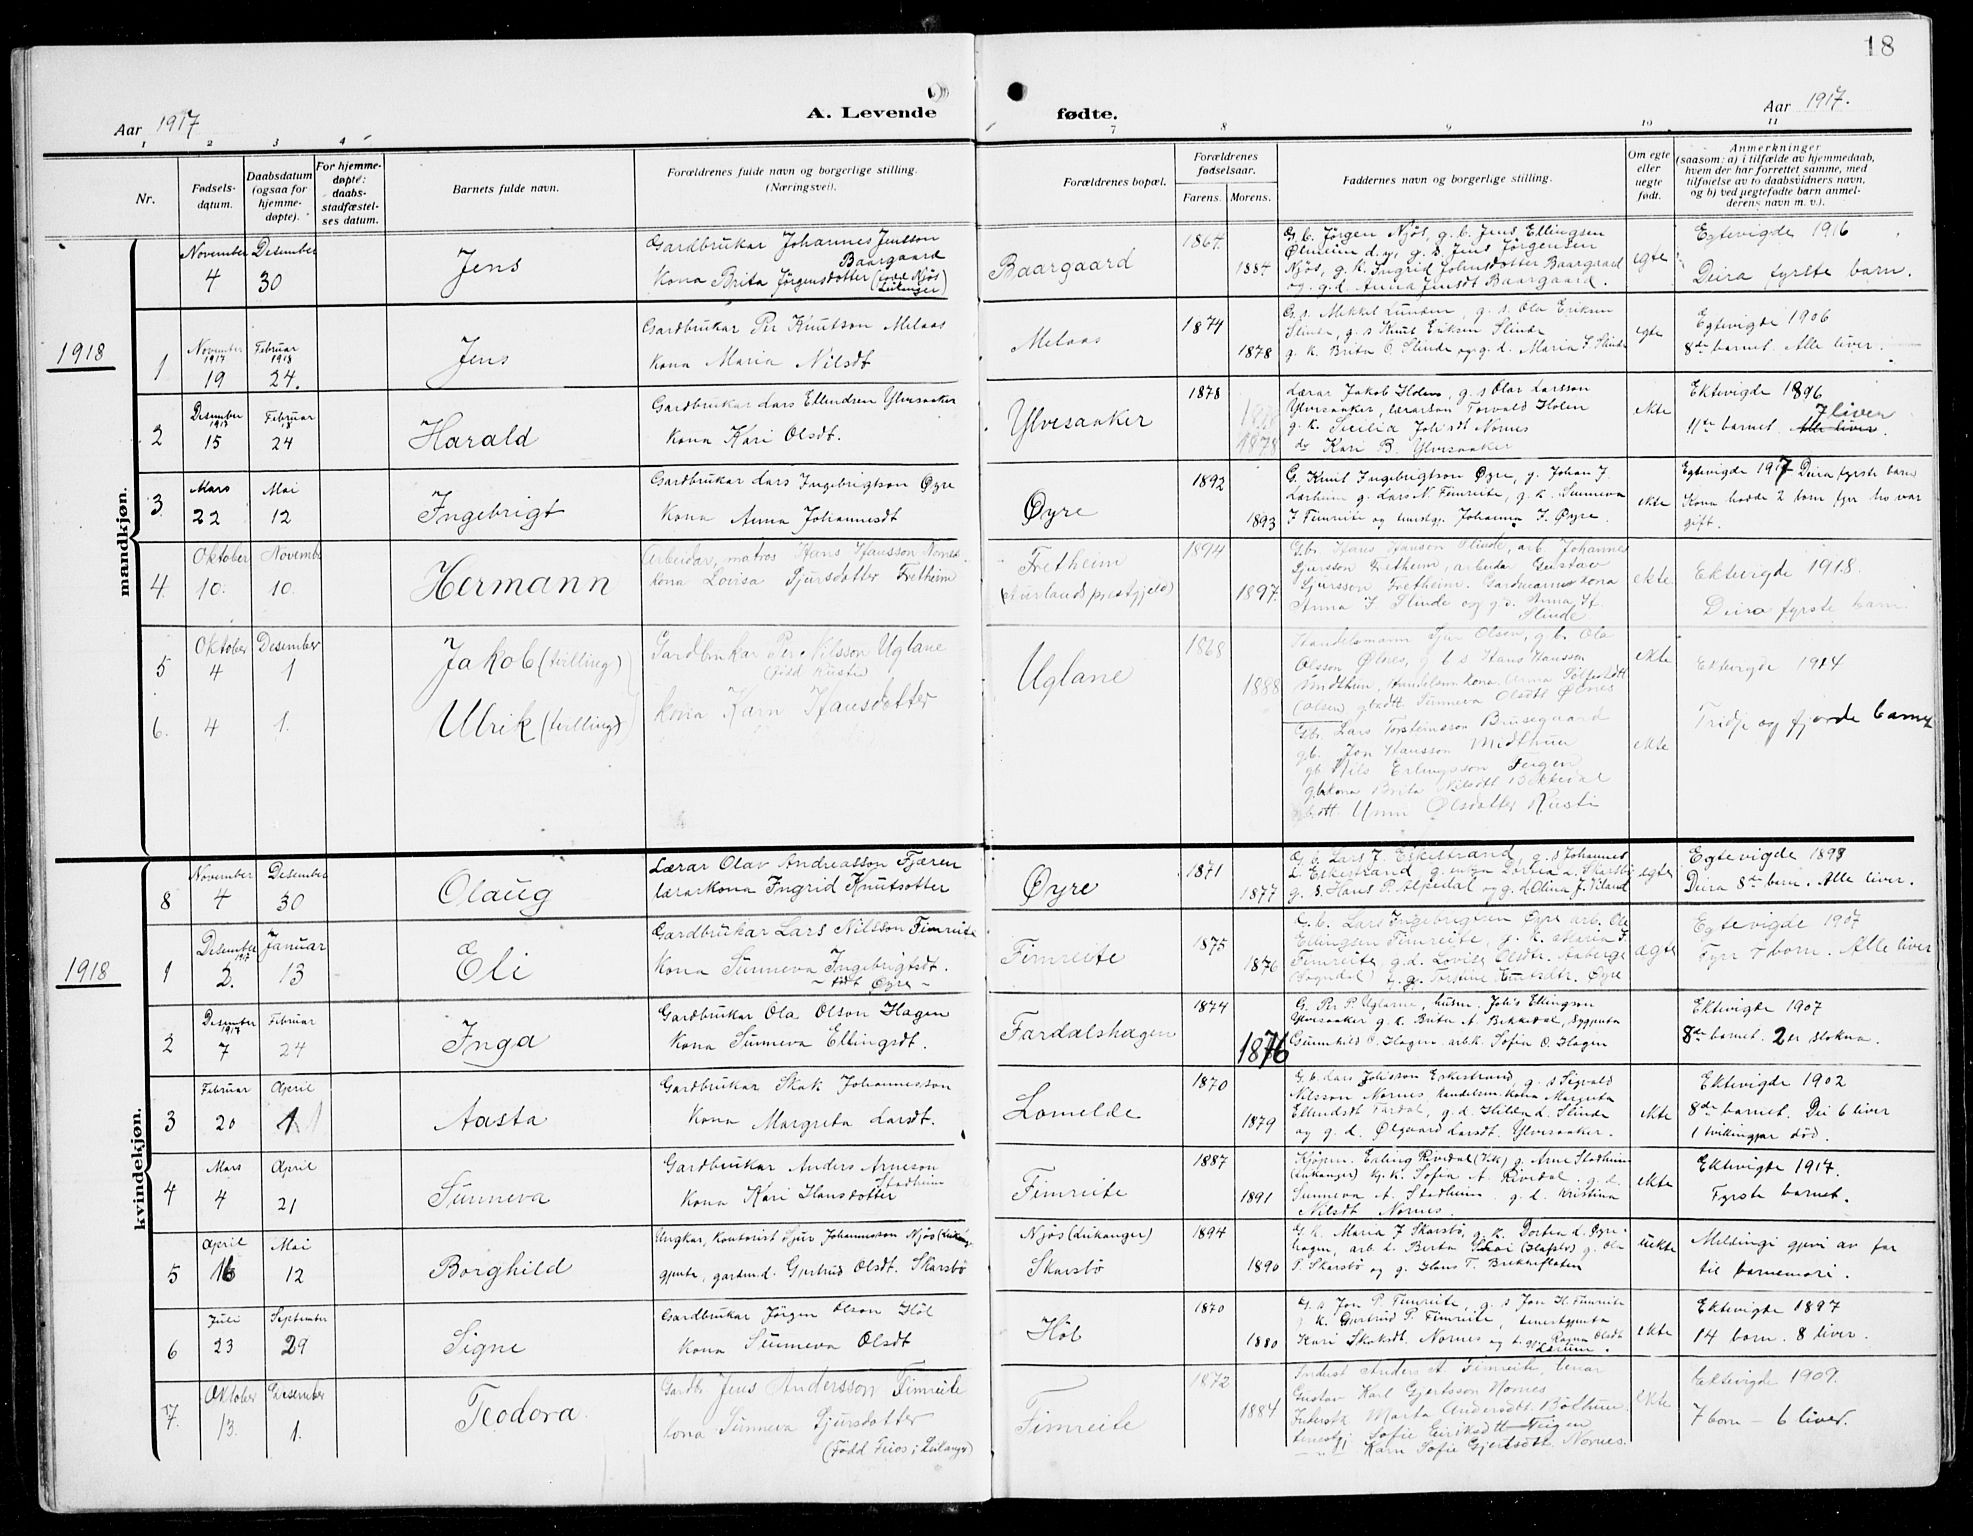 18
Aar 1917
A. Levende
fødte.
Aar 1917.
1 2 3 4 7 8 9 10 11
Nr.
Fødsels-
datum.
Daabsdatum
(ogsaa for
hjemme-
døpte).
For hjemme-
døpte:
daabs-
stadfæstel-
ses datum.
Barnets fulde navn.
Forældrenes fulde navn og borgerlige stilling.
(Næringsvei).
Forældrenes bopæl.
Forældrenes
fødselsaar.
Farens. Morens.
Faddernes navn og borgerlige stilling.
Om egte
eller
uegte
født.
Anmerkninger
(saasom: a) i tilfælde av hjemmedaab,
hvem der har forrettet samme, med
tilføielse av to daabsvidners navn,
og b) ved uegtefødte barn anmel-
derens navn m. v.).
mandkjøn.
November
4
Desember
30
Jens
Gardbrukar Johannes Jensson
Baargaard
Kona Brita Jörgensdotter (født Njøs
Leikanger)
Baargaard
1867.
1884
G. b. Jörgen Njøs, g. b. Jens Ellingsen
Ølmheim d.y., g. s. Jens Jörgensen
Njøs, g. k. Ingrid Johnsdotter Baargaard
og g. d. Anna Jensdt Baargaard.
egte
Egtevigde 1916
Deira fyrste barn.
1918
1
November
1917
19
Februar
1918
24.
Jens
Gardbrukar Per Knutson Melaas
Kona Maria Nilsdt
Melaas
1874
1878
G. s. Mikkel Lunden, g. s. Ola Eriksen
Slinde, g. s Knut Eriksen Slinde
g. k. Brita O. Slinde og g. d. Maria S. Slinde
egte
Egtevigde 1906
8de barnet. Alle liver.
2
Desember
1917
15
Februar
18
24
Harald
Gardbrukar Lars Ellendsen Ylvesaaker
Kona Kari Olsdt.
Ylvesaaker
1878
1878
Lærar Jakob Holen, g. s Olav Larsson
Ylvesaaker, lærarson Torvald Holen
g. k. Sicilia Joh.sdt Nornes
do Kari B. Ylvesaaker
ekte
Ektevigde 1896
7 liver
11te barnet. Alle liver.
3
Mars
22
Mai
12
Ingebrigt
Gardbrukar Lars Ingebrigtson Øyre
Kona Anna Johannesdt
Øyre
1892
1893
G. Knut Ingebrigtson Øyre, g. Johan J.
Lærheim g. Lars N. Fimreite, g. k. Sunneva
J Fimreite og tenestgj. Johanna J. Øyre.
ekte
Egtevigde 1917 Deira fyrste barn
Kona hadde 2 born fyr ho var
gift.
4.
Oktober
10.
Novembr
10.
Hermann
Arbeidar, matros Hans Hansson Nornes
kona Lovisa Sjursdotter Fretheim
Fretheim
(Aurlands prestgjeld)
1894
1897.
Gbr. Hans Hanson Slinde, arb. Johannes
Sjursson Fretheim, arbeidar Gustav
Sjursson Fretheim. Gardmannskona
Anna J. Slinde og g.d. Anna H.
Slinde
ekte
Ektevigde 1918.
Deira fyrste barn.
5
Oktober
4
Desember
1
Jakob (tvilling)
Gardbrukar Per Nilsson Uglane
(født Rusti)
kona Karn Hansdotter
Uglane
1868
1888
Handelsmann Sjur Olsen, g.b. Ola
Olsson Ølnes, g b s Hans Hansson
Midthun, Handelsm.kona Anna Sølfestdtt
(Olsen) gbdtt. Sunneva Olsdtt Ølnes
ekte
Ektevigde 1914
6.
4
1.
Ulrik (tvilling)
Gbr. Lars Torsteinsson Brusegaard
gb. Jon Hansson Midthun
gb Nils Erlingsson Teigen
gbkona Brita Nilsdtt Bekkedal
gbdtt. Unni Olsdotter Rusti
ekte
Tridje og fjorde barnet
kvindekjøn.
8
November
4
Desember
30
Olaug
Lærar Olav Andreasson Fjæren
lærarkona Ingrid Knutsotter
Øyre
1871
1877
G. b. Lars J. Eskestrand, g. s Johannes
L. Eskestrand g. enkja Dortea A. Skarsbø
g. s. Hans P. Alpedal og g. d Olina J. Niland
egte
Egtevigde 1898
Deira 8de barn. Alle liver.
1918
1
Desember
1917
2.
Januar
13
Eli
Gardbrukar Lars Nilsson Fimreite
Kona Sunneva Ingebrigtsdt.
– født Øyre –
Fimreite
1875
1876
G. b. Lars Ingebrigtsen Øyre arb. Ole
Ellingsen Fimreite, g. k. Maria J.
Fimreite, g. d. Lovise Olsdtr. Aaberge
(Sogndal) og g. Torstine Knutsdtr. Øyre
ægte
Egtevigde 1907
Fyrr 7 born. Alle liver
2
Desember
1917
7
Februar
24
Inga
Gardbrukar Ola Olson Hagen
Kona Sunneva Ellingsdt.
Fardalshagen
1874
1876
G. Per P. Uglarne, husm. Joh's Ellingson
Ylvesaaker g. k. Brita A. Bekkedal, sygjenta
Gunnhild O. Hagen arbk. Sofia O. Hagen
Ektevigde 1907
8de barnet. 2 er slokna.
3
Februar
20
April
1
Aasta
Gardbrukar Skak Johannesson
Kona Margreta Larsdt.
Lomelde
1870
1879
G. b. Lars Joh.sson Eskestrand, g. s Sigvald
Nilsson Nornes, handelsm.kona Margreta
Ellendsdt Fardal, g. d. Hilda L. Slinde
og g. d. Ølgaard Larsdt. Ylvesaaker.
ekte
Ektevigde 1902
8de barnet. Dei 6 liver
1 tvillingpar død.
4
Mars
4
April
21
Sunneva
Gardbrukar Anders Arneson
Stadheim
Kona Kari Hansdotter
Fimreite
1887
1891
Kjøpm. Erling Rivedal (Vik) g. Arne Stadheim
(Leikanger) kj.k. Sofia A. Rivedal. g. d.
Sunneva A. Stadheim g. d. Kristina
Nilsdt Nornes.
ekte
Ektevigde 1917.
Fyrste barnet.
5
April
16
Mai
12
Borghild
Ungkar, kontorist Sjur Johannesson Njøs (Leikang.
gjenta, gardm.d. Gjertrud Olsdt. Skarsbø
Njøs (Leikanger)
Skarsbø
1894
1890
G. k. Maria J Skarsbø, g. k. Dortea L. Øyre-
hagen, arb. L. Berta Skai (Hafslo) g. Ole
P. Skarsbø og g. Hans T. Brekkeflaten
uekte
Meldingi gjevi av far
til barnemori.
6
Juli
23
September
29
Signe
Gardbrukar Jörgen Olson Høl
Kona Sunneva Olsdt
Høl
1870
1880
G. s Jon P. Fimreite, g. s Jon H. Fimreite
g. k. Gjertrud P. Fimreite, tenestgjenta
Kari Skaksdt. Nornes og t. gj. Ragna Olsdt
Lærum.
ekte
Ektevigde 1897
14 born. 8 liver.
7.
Oktober
13.
Desember
1.
Teodora.
Gardbr. Jens Andersson Fimreite
kona Sunneva Sjursdotter
(Fødd Feios i Leikanger)
Fimreite
1872
1884
Inderst Anders A Fimreite, tenar
Gustav Karl Gjertsson Nornes
Inderstk Marta Andersdtt Bolthun
tenestgj. Sofie Eiriksdtt Teigen
Karn Sofie Gjertsdtt. Nornes.
ekte
Ektevigde 1909.
7 born – 6 liver.